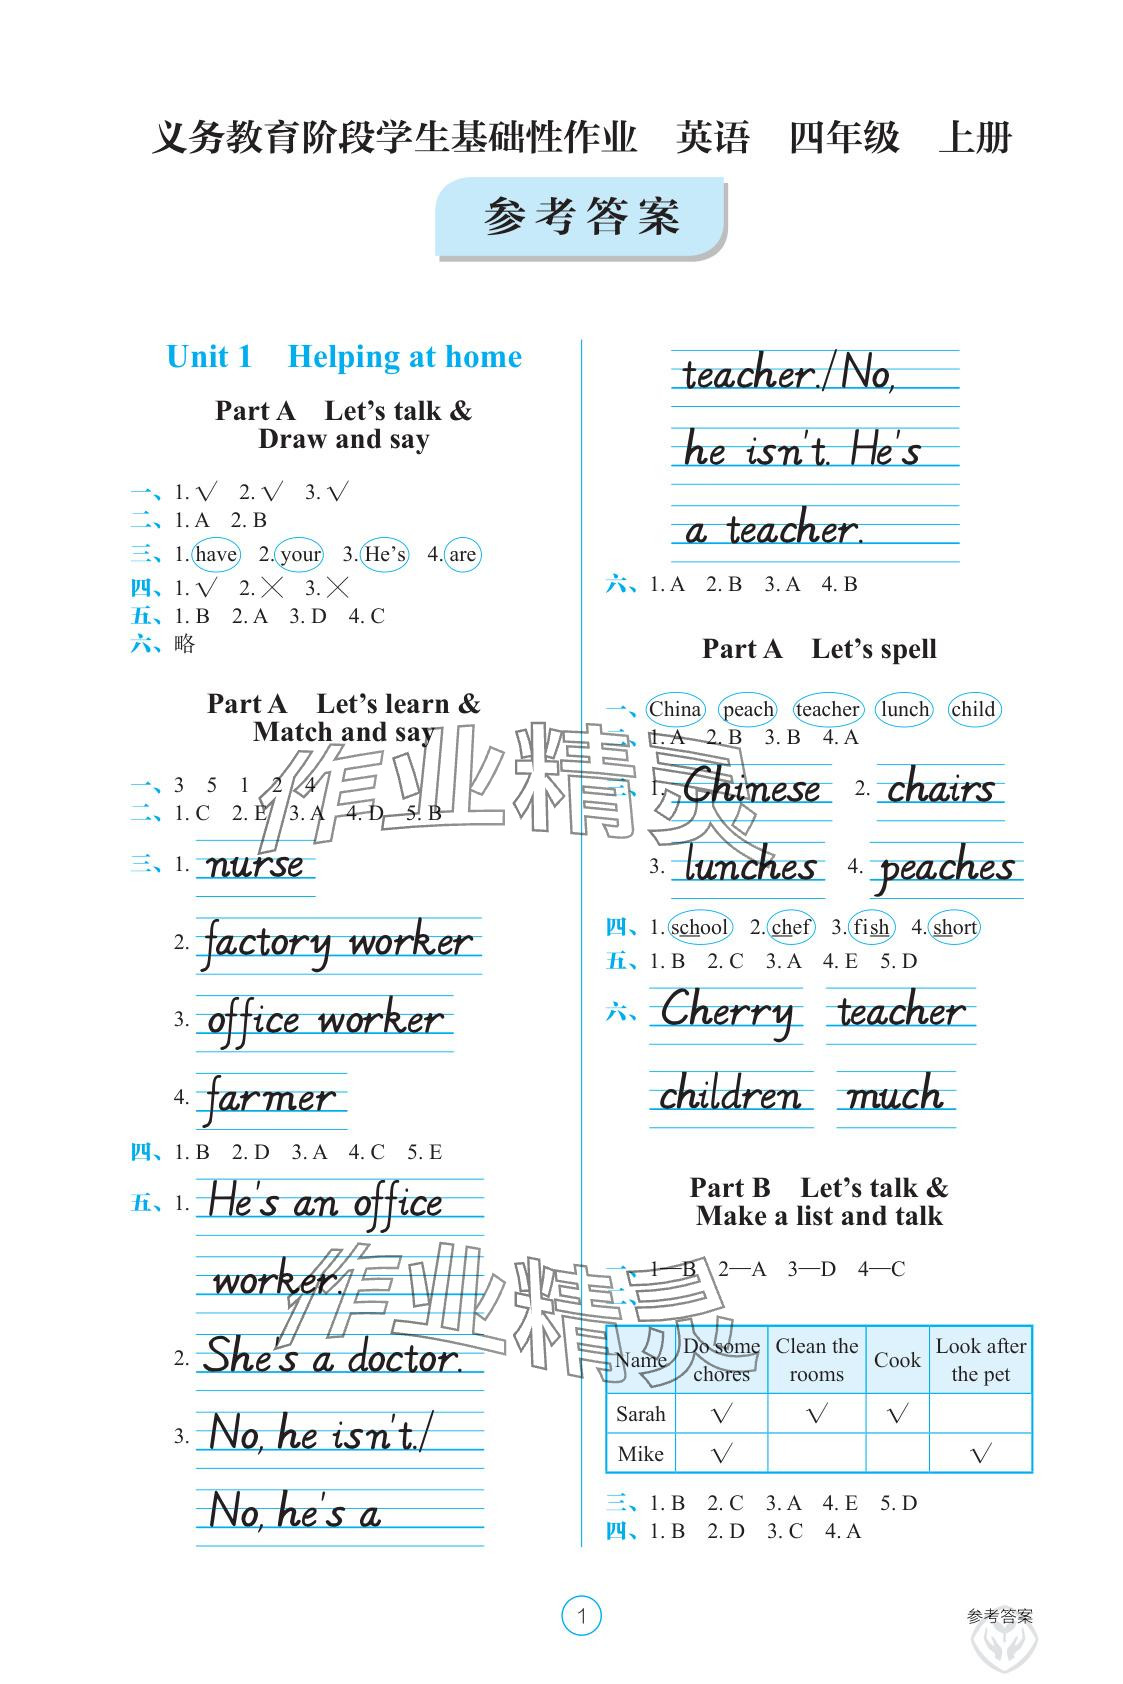 义务教育阶段学生基础性作业 英语 四年级 上册
参考答案
Unit 1 Helping at home
Part A Let's talk &
Draw and say
一、1. √ 2. √ 3. √
二、1. A 2. B
三、1. have 2. your 3. He's 4. are
四、1. √ 2. × 3. ×
五、1. B 2. A 3. D 4. C
六、略
Part A Let's learn &
Match and say
一、3 5 1 2 4
二、1. C 2. E 3. A 4. D 5. B
三、1. nurse
2. factory worker
3. office worker
4. farmer
四、1. B 2. D 3. A 4. C 5. E
五、1. He's an office
worker.
2. She's a doctor.
3. No, he isn't./
No, he's a
teacher./No,
he isn't. He's
a teacher.
六、1. A 2. B 3. A 4. B
Part A Let's spell
一、China peach teacher lunch child
二、1. A 2. B 3. B 4. A
三、1. Chinese 2. chairs
3. lunches 4. peaches
四、1. school 2. chef 3. fish 4. short
五、1. B 2. C 3. A 4. E 5. D
六、Cherry teacher
children much
Part B Let's talk &
Make a list and talk
一、1—B 2—A 3—D 4—C
二、
Name Do some chores Clean the rooms Cook Look after the pet
Sarah √ √ √
Mike √ √
三、1. B 2. C 3. A 4. E 5. D
四、1. B 2. D 3. C 4. A
作业精灵
作业精灵
1
参考答案